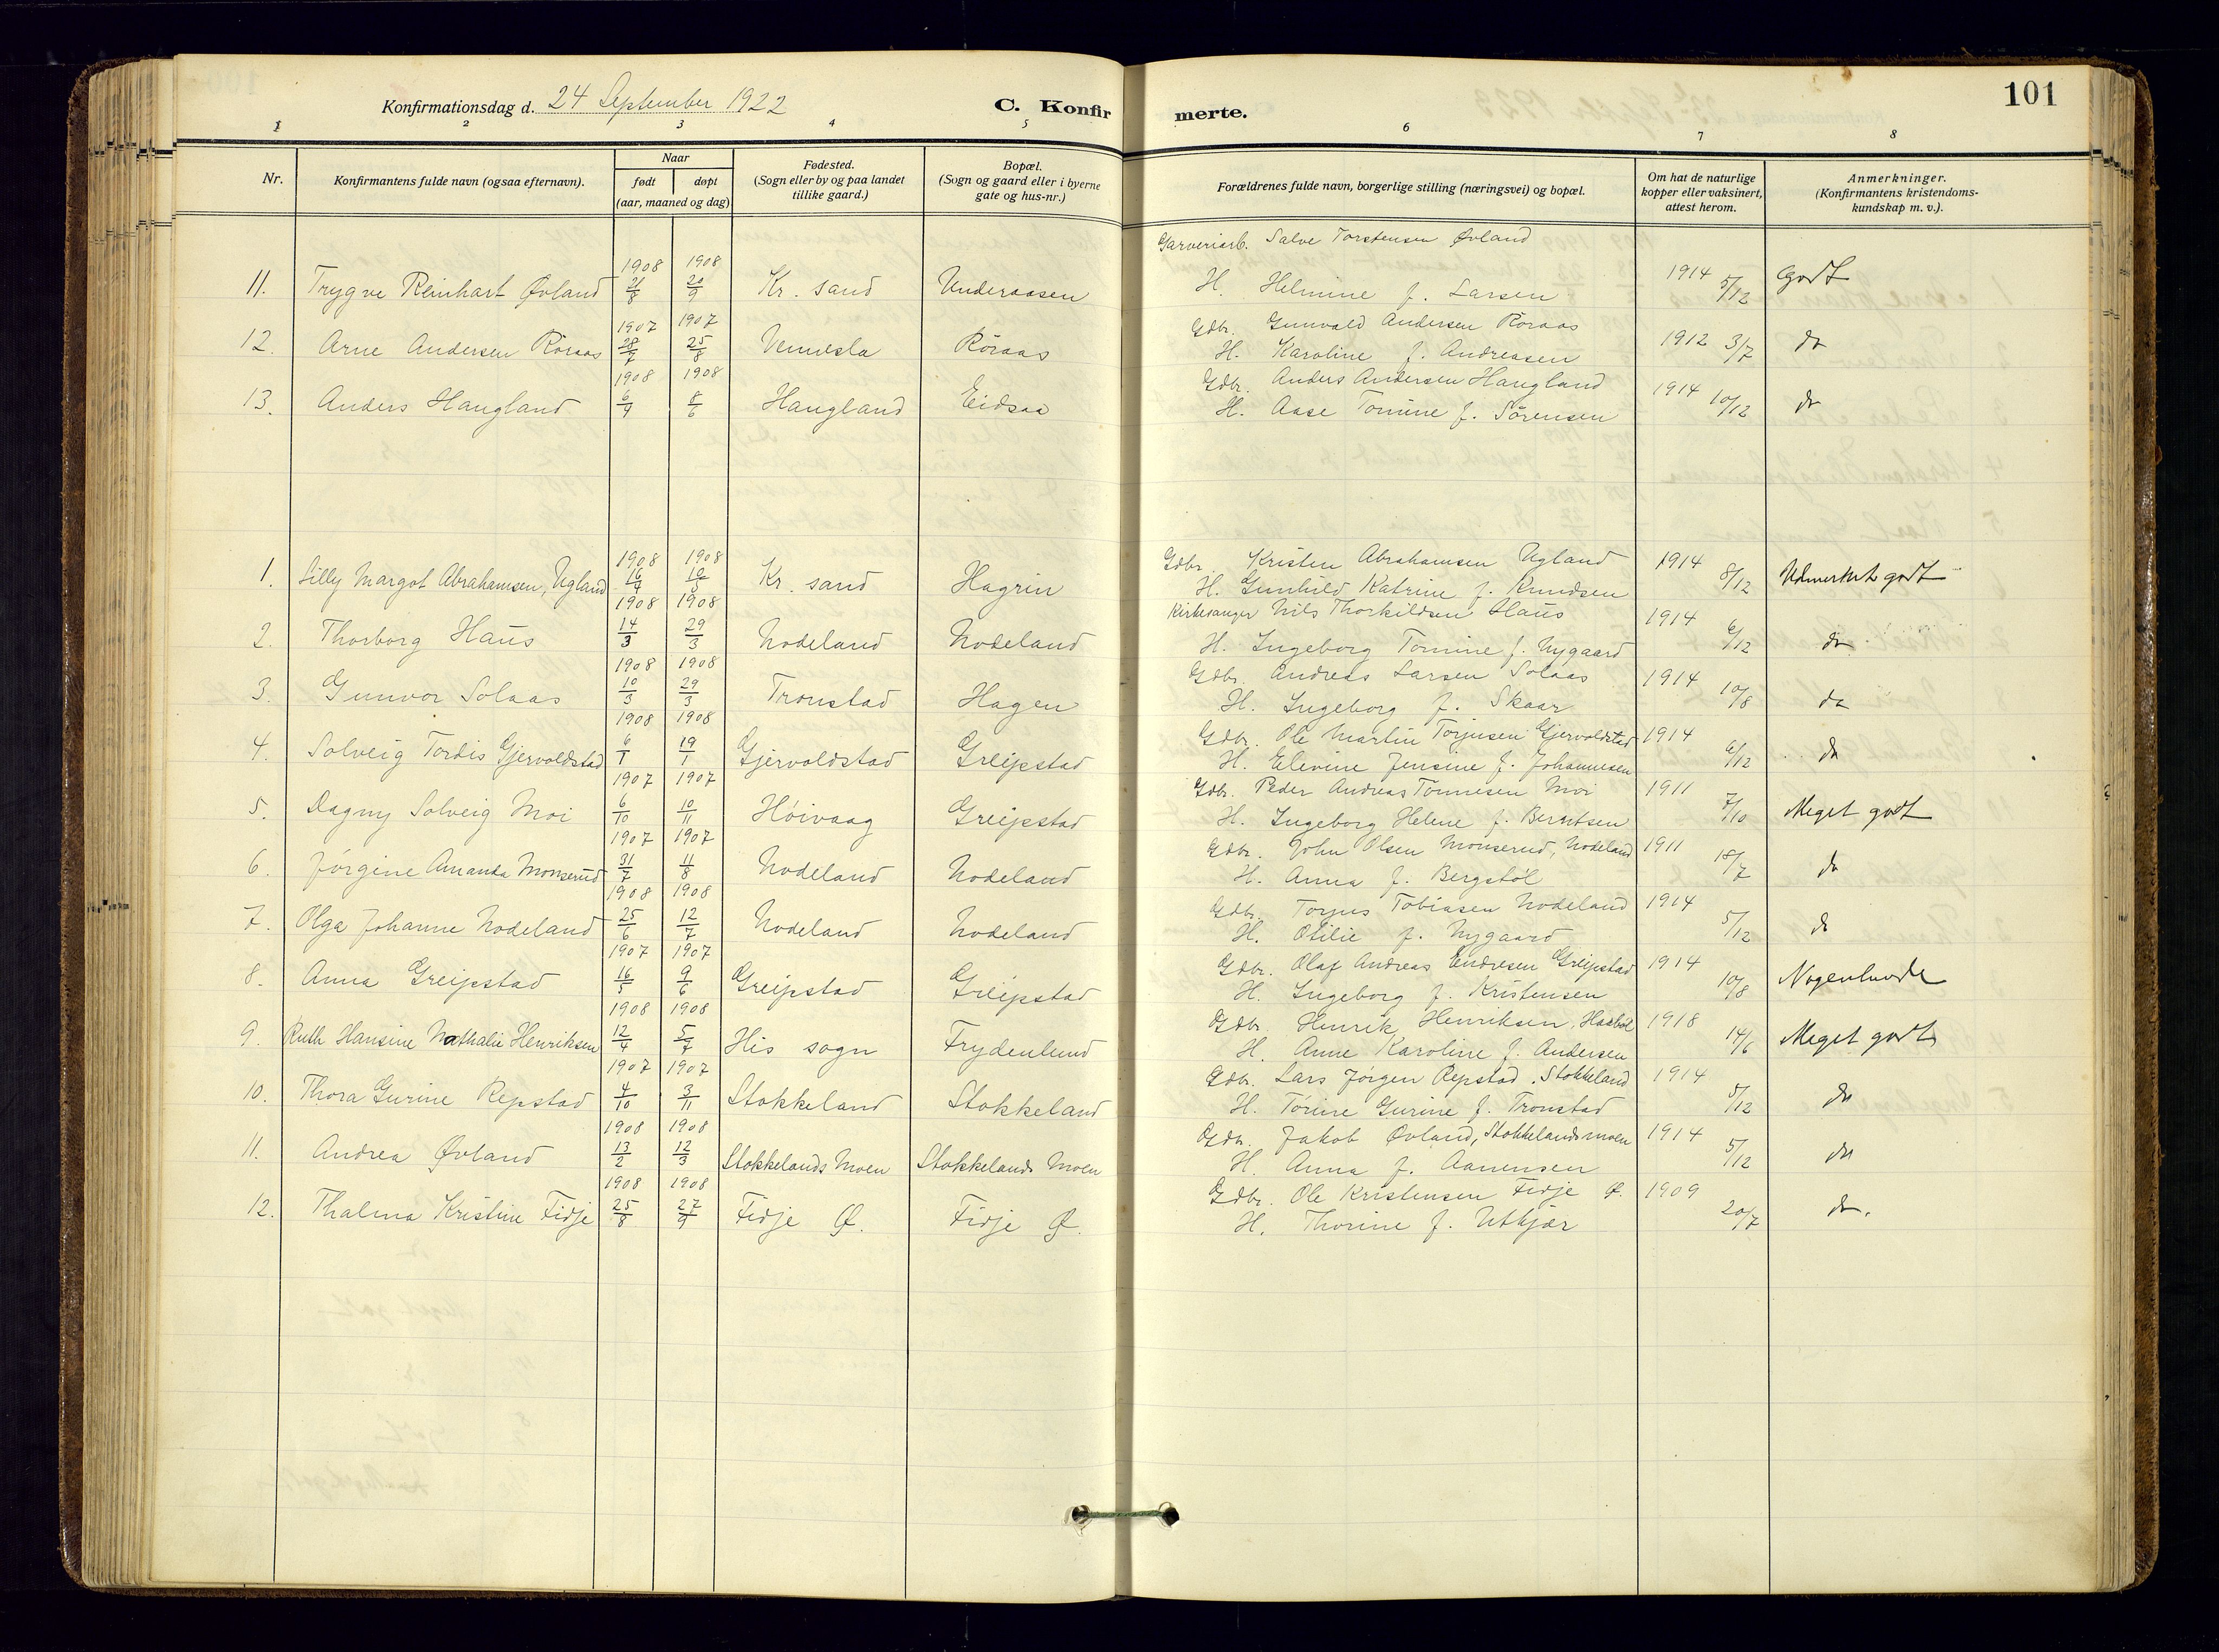 Konfirmationsdag d. 24 September 1922 C. Konfirmerte. 101
1 2 3 4 5 6 7 8
Nr. Konfirmantens fulde navn (ogsaa efternavn). Naar født døpt (aar, maaned og dag) Fødested. (Sogn eller by og paa landet tillike gaard.) Bopæl. (Sogn og gaard eller i byerne gate og hus-nr.) Forældrenes fulde navn, borgerlige stilling (næringsvei) og bopæl. Om hat de naturlige kopper eller vaksinert, attest herom. Anmerkninger. (Konfirmantens kristendoms-kundskap m. v.).
Garveriarb. Salve Torstensen Øvland
11. Trygve Reinhart Øvland 1908 21/8 1908 20/9 Kr. sand Underaasen H. Helmine f. Larsen 1914 5/12 Godt
Gdbr. Gunvald Andersen Röraas
12. Arne Andersen Röraas 1907 28/7 1907 25/8 Vennesla Röraas H. Karoline f. Andreasen 1912 3/7 do
Gdbr. Anders Andersen Haugland
13. Anders Haugland 1908 6/4 1908 8/6 Haugland Eidsaa H. Aase Tomine f. Sörensen 1914 10/12 do
Gdbr. Kristen Abrahamsen Ugland
1. Lilly Margot Abrahamsen, Ugland 1908 16/4 1908 10/5 Kr. sand Hagrin H. Gunhild Katrine f. Knudsen 1914 8/12 Udmerket godt
Kirkesanger Nils Thorkildsen Haüs
2. Thorborg Haüs 1908 14/3 1908 29/3 Nodeland Nodeland H. Ingeborg Tomine f. Nygaard 1914 6/12 do
Gdbr. Andreas Larsen Solaas
3. Gunvor Solaas 1908 10/3 1908 29/3 Tronstad Hagen H. Ingeborg f. Skaar 1914 10/8 do
Gdbr. Ole Martin Torjusen Gjervoldstad
4. Solveig Tordis Gjervoldstad 1908 6/1 1908 19/1 Gjervoldstad Greipstad H. Elevine Jensine f. Johannesen 1914 6/12 do
Gdbr. Peder Andreas Tönnesen Moi
5. Dagny Solveig Moi 1907 6/10 1907 10/11 Höivaag Greipstad H. Ingeborg Helene f. Berntsen 1911 7/10 Meget godt
Gdbr. John Olsen Monserud, Nodeland
6. Jörgine Amanda Monserud 1907 31/7 1907 11/8 Nodeland Nodeland H. Anna f. Bergstöl 1911 18/7 do
Gdbr. Torjus Tobiasen Nodeland
7. Olga Johanne Nodeland 1908 25/6 1908 12/7 Nodeland Nodeland H. Otilie f. Nygaard 1914 5/12 do
Gdbr. Olaf Andreas Endresen Greipstad
8. Anna Greipstad 1907 16/5 1907 9/6 Greipstad Greipstad H. Ingeborg f. Kristensen 1914 10/8 Nogenlunde
Gdbr. Henrik Henriksen,
9. Ruth Hansine Nathalie Henriksen 1908 12/4 1908 5/7 His sogn Frydenlund H. Anne Karoline f. Andersen 1918 14/6 Meget godt
Gdbr. Lars Jörgen Repstad. Stokkeland
10. Thora Gurine Repstad 1907 4/10 1907 3/11 Stokkeland Stokkeland H. Törine Gurine f. Tronstad 1914 5/12 do
Gdbr. Jakob Øvland, Stokkelandsmoen
11. Andrea Øvland 1908 13/2 1908 12/3 Stokkelands Moen Stokkelands Moen H. Anna f. Aanensen 1914 5/12 do
Gdbr. Ole Kristensen Fidje Ø.
12. Thalma Kristine Fidje 1908 25/8 1908 27/9 Fidje Ø. Fidje Ø. H. Thorine f. Utkjær 1909 20/7 do.